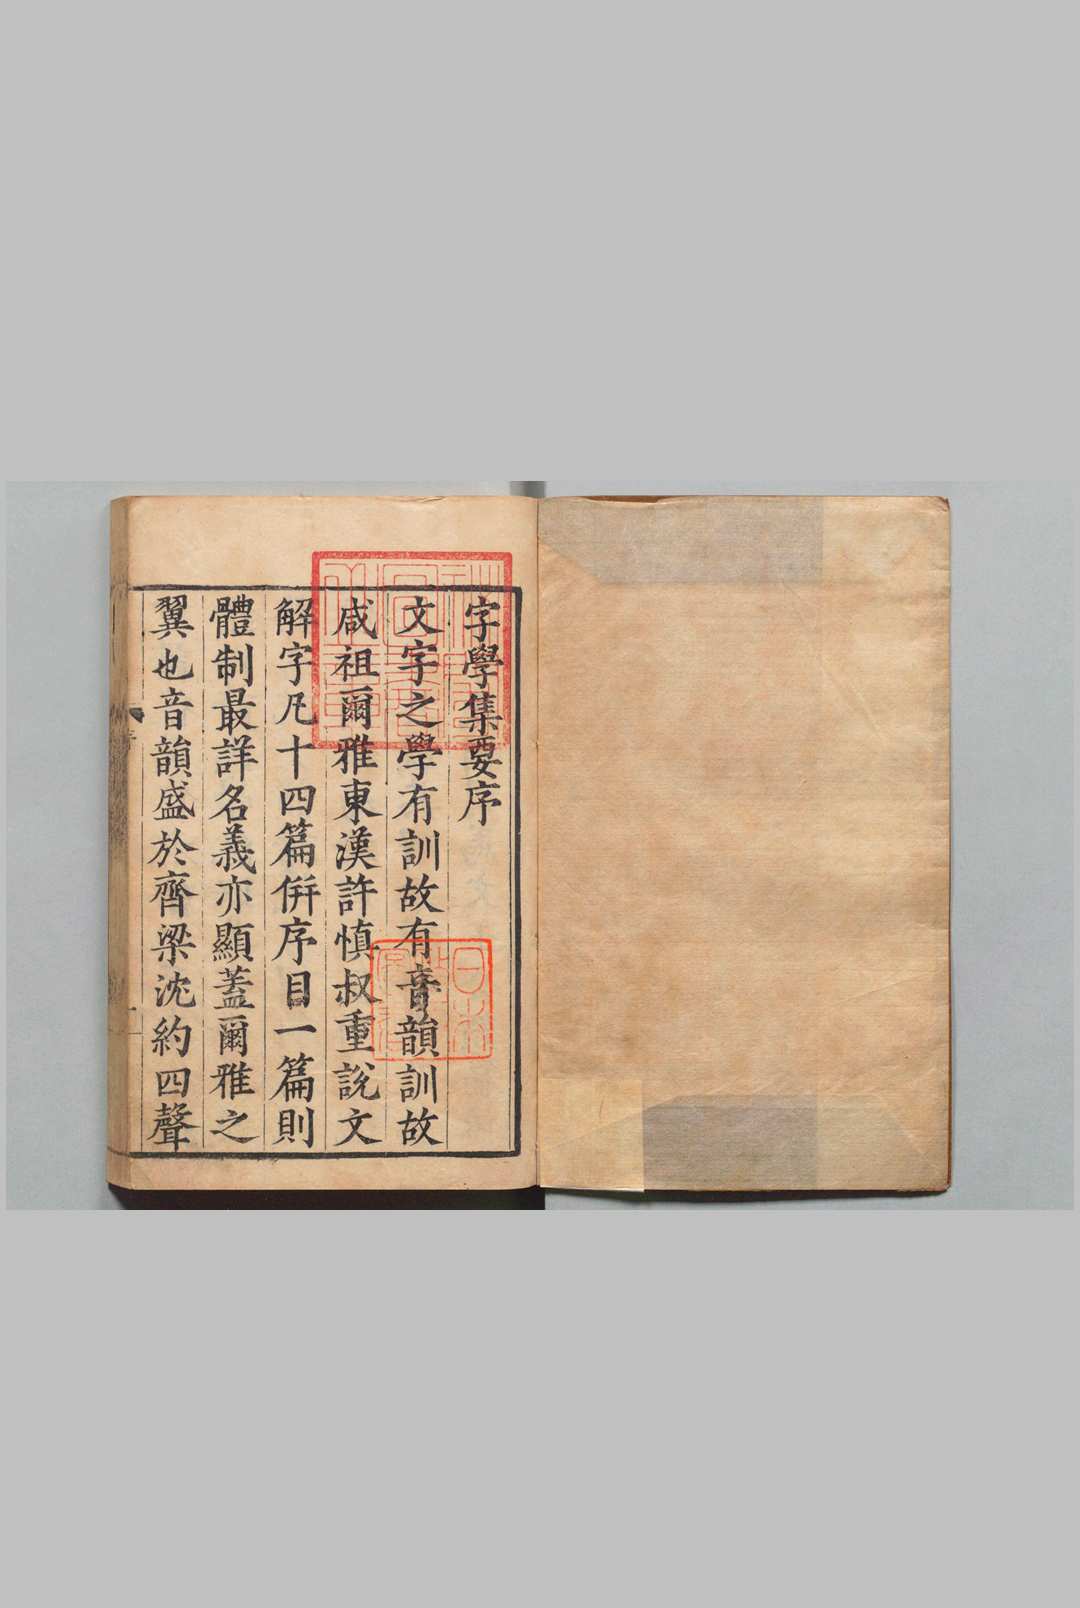 字學集要序
文字之學有訓故有音韻訓故
咸祖爾雅東漢許慎叔重說文
解字凡十四篇併序目一篇則
體制最詳名義亦顯蓋爾雅之
翼也音韻盛於齊梁沈約四聲
序
一